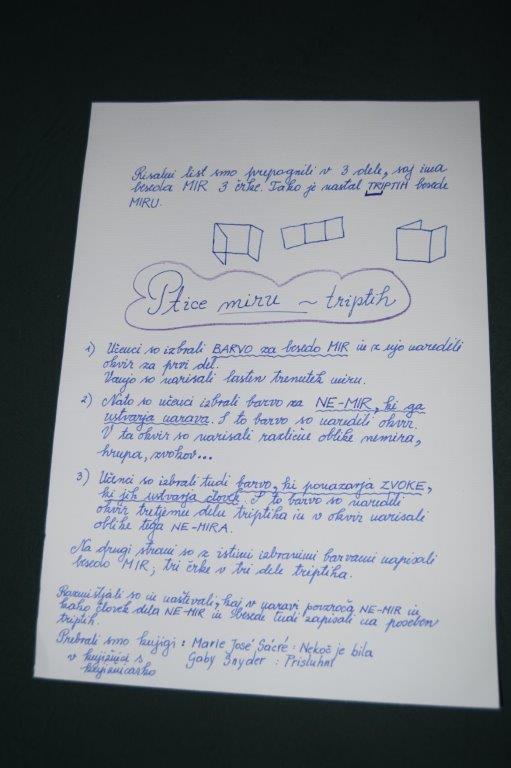 Risalni list smo prepognili v 3 dele, saj ima
beseda MIR 3 črke. Tako je nastal TRIPTIH besede
MIRU.
Ptice miru ~ triptih
1) Učenci so izbrali BARVO za besedo MIR in z njo naredili
okvir za prvi del.
Vanjo so narisali lasten trenutek miru.
2) Nato so učenci izbrali barvo za NE-MIR, ki ga
ustvarja narava. S to barvo so naredili okvir.
V ta okvir so narisali različne oblike nemira,
hrupa, zvokov...
3) Učenci so izbrali tudi barvo, ki ponazarja ZVOKE,
ki jih ustvarja človek. S to barvo so naredili
okvir tretjemu delu triptiha in v okvir narisali
oblike tega NE-MIRA.
Na drugi strani so z istimi izbranimi barvami napisali
besedo MIR; tri črke v tri dele triptiha.
Razmišljali so in naštevali, kaj v naravi povzroča NE-MIR in
kako človek dela NE-MIR in besede tudi zapisali na poseben
triptih.
Prebrali smo knjigi : Marie José Sacré : Nekoč je bila
v knjižnici s Gaby Snyder : Prisluhni
knjižničarko